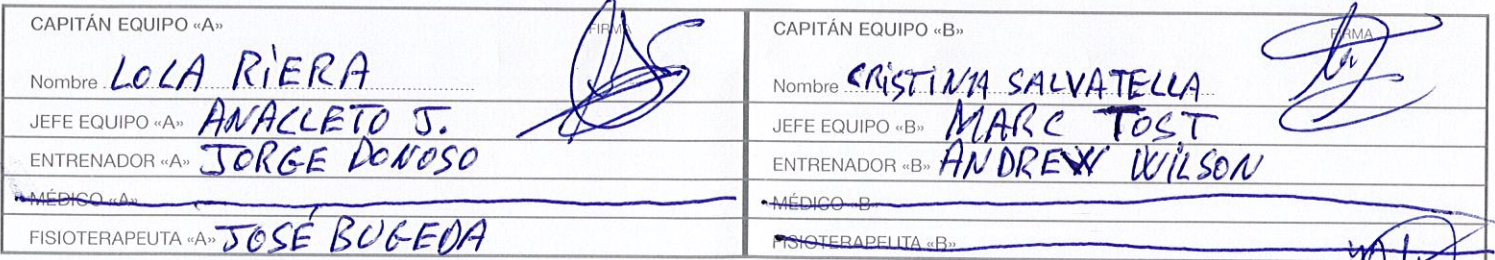 CAPITÁN EQUIPO «A» FIRMA
Nombre LOLA RIERA
JEFE EQUIPO «A» ANACLETO J.
ENTRENADOR «A» JORGE DONOSO
MÉDICO «A»
FISIOTERAPEUTA «A» JOSÉ BUGEDA
CAPITÁN EQUIPO «B» FIRMA
Nombre CRISTINA SALVATELLA
JEFE EQUIPO «B» MARC TOST
ENTRENADOR «B» ANDREW WILSON
MÉDICO «B»
FISIOTERAPEUTA «B»